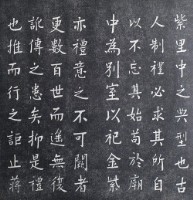 紫里中之典型也古
人制禮必求其所自
以不忘其始苟於廟
中為別室以祀金紫
亦禮意之不可闕者
更數百世而遂無後
訛傳之患矣抑是禮
也推而行之詎止蔣